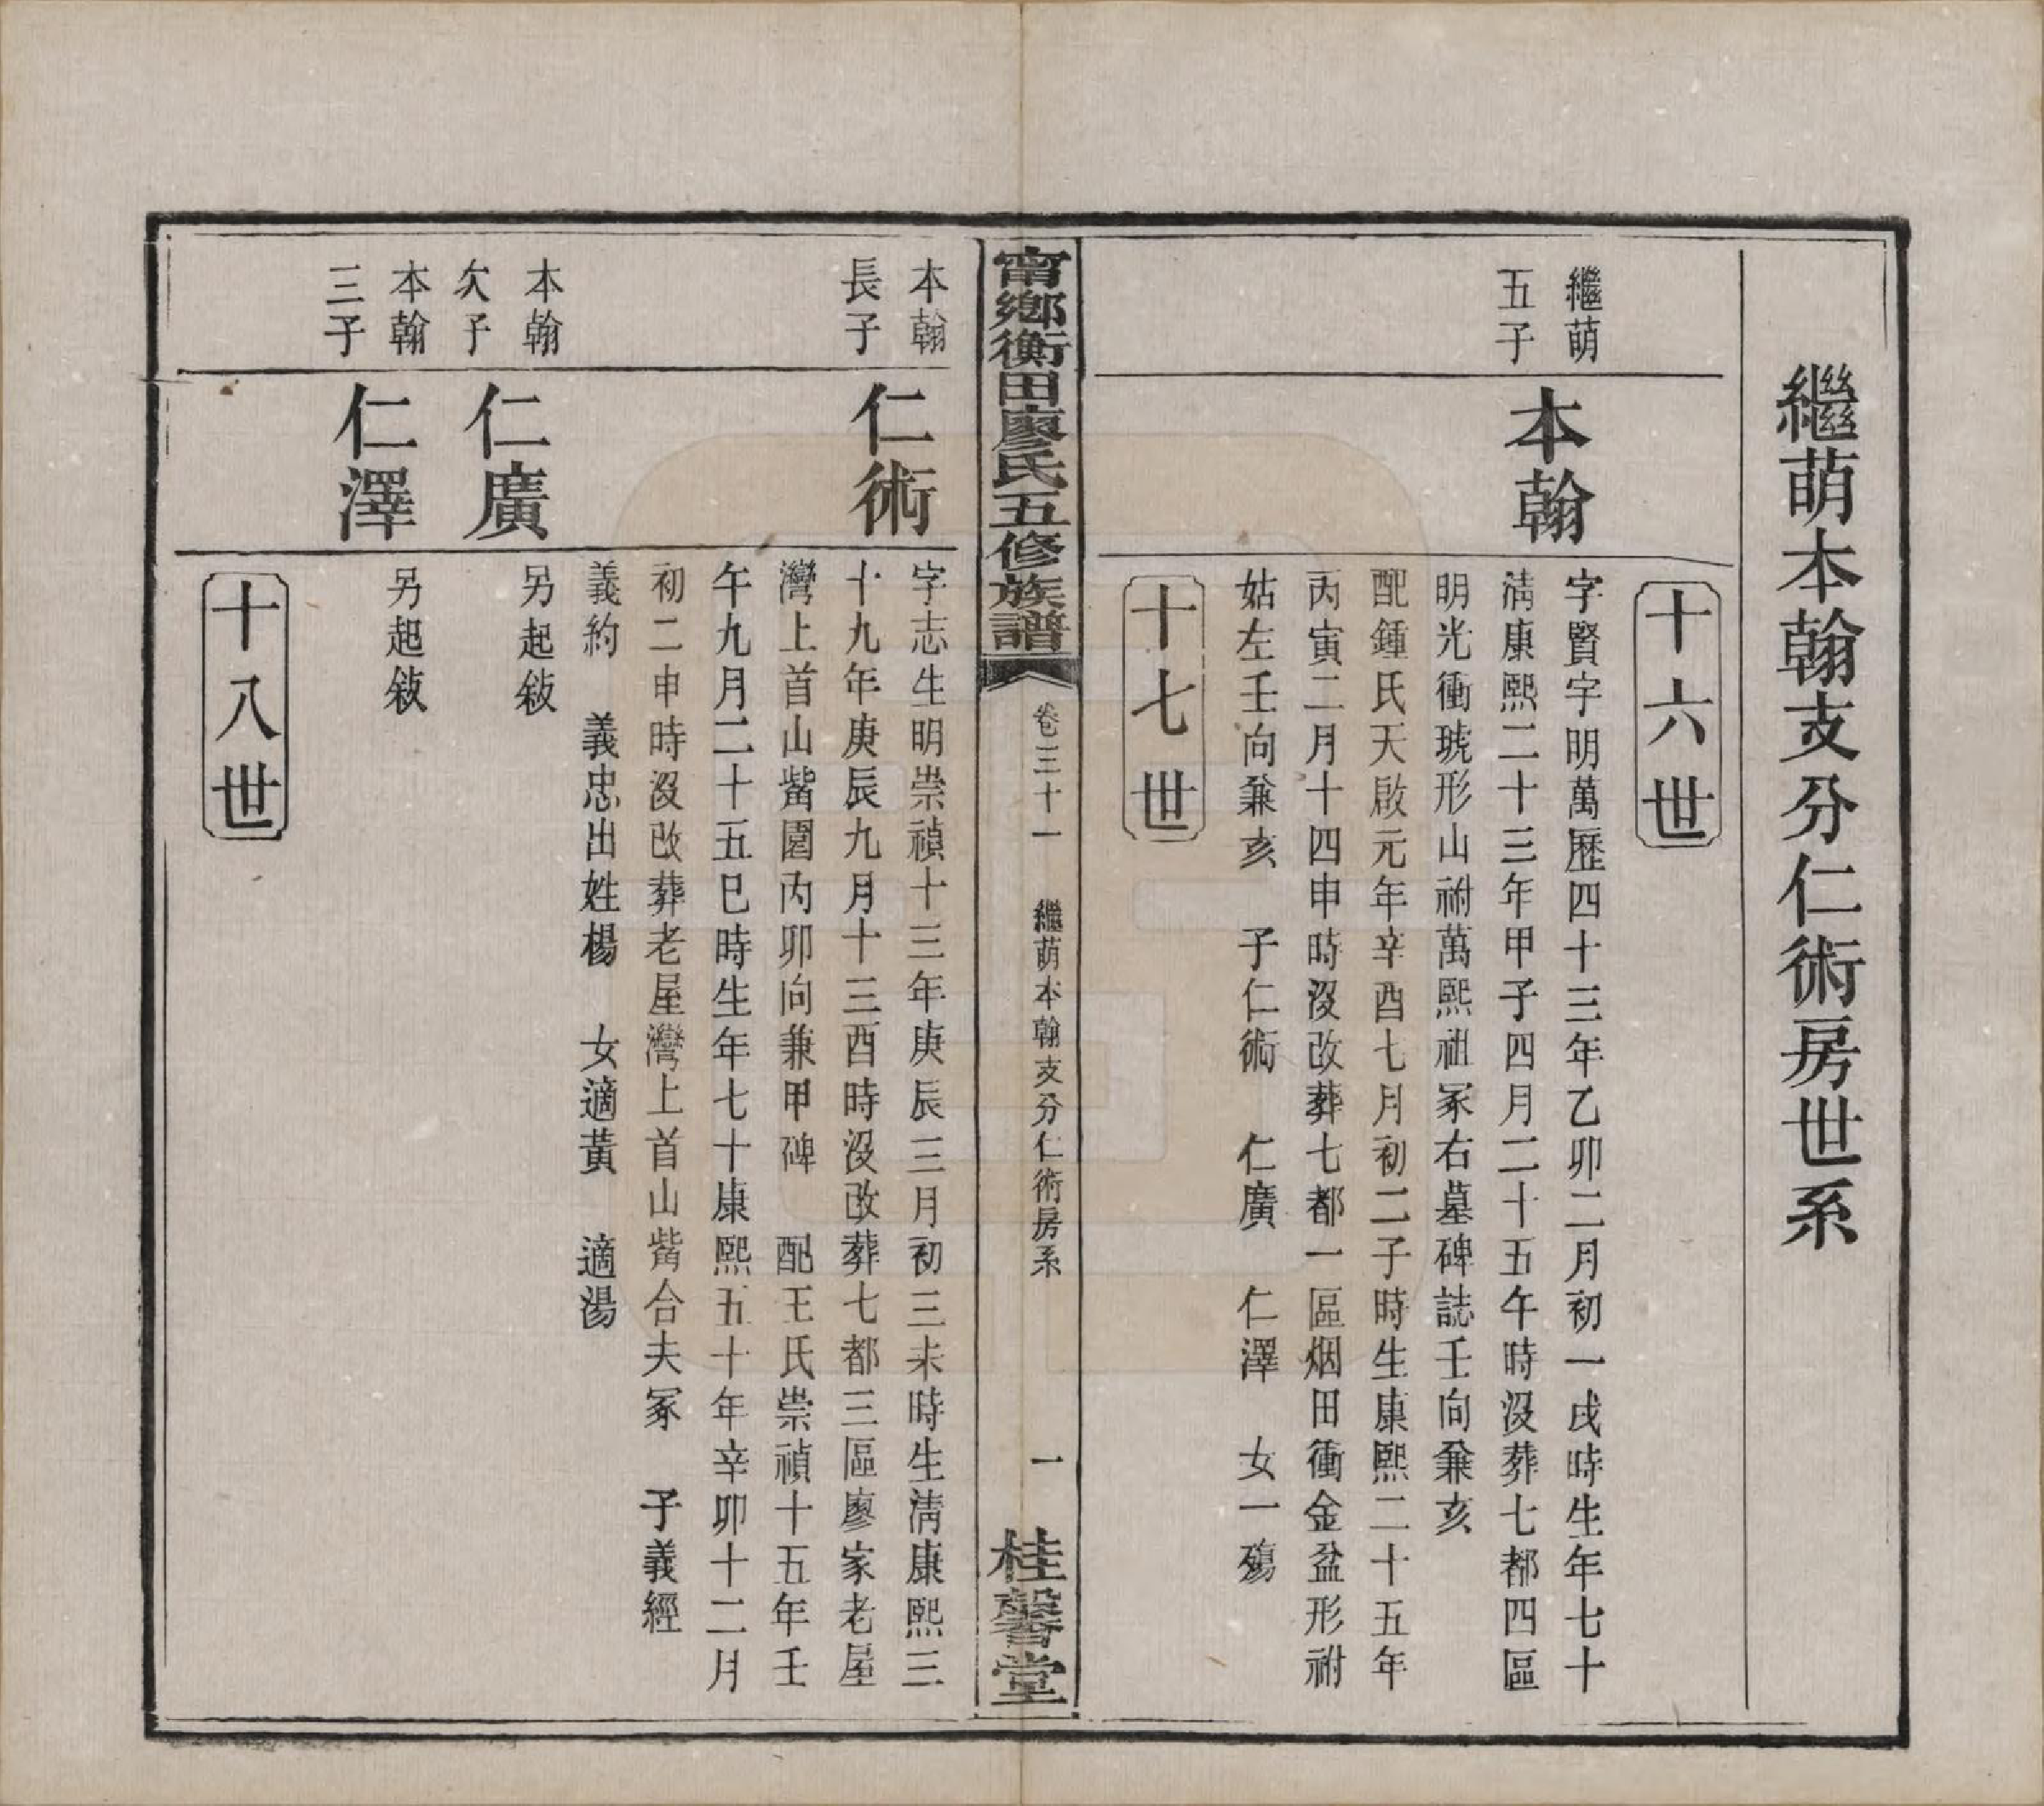 繼萌本翰支分仁術房世系
十六世
繼萌
五子
本翰
字賢字明萬歷四十三年乙卯二月初一戌時生年七十
淸康熙二十三年甲子四月二十五午時沒葬七都四區
明光衝琥形山祔萬熙祖冢右墓碑誌壬向兼亥
配鍾氏天啟元年辛酉七月初二子時生康熙二十五年
丙寅二月十四申時沒改葬七都一區烟田衝金盆形祔
姑左壬向兼亥　子仁術　仁廣　仁澤　女一殤
十七世
甯鄉衡田廖氏五修族譜
卷三十一　繼萌本翰支分仁術房系
一
桂馨堂
本翰
長子
仁術
字志生明崇禎十三年庚辰三月初三未時生淸康熙三
十九年庚辰九月十三酉時沒改葬七都三區廖家老屋
灣上首山觜園內卯向兼甲碑　配王氏崇禎十五年壬
午九月二十五巳時生年七十康熙五十年辛卯十二月
初二申時沒改葬老屋灣上首山觜合夫冢　子義經
義約　義忠出姓楊　女適黃　適湯
本翰
次子
仁廣
另起敍
本翰
三子
仁澤
另起敍
十八世